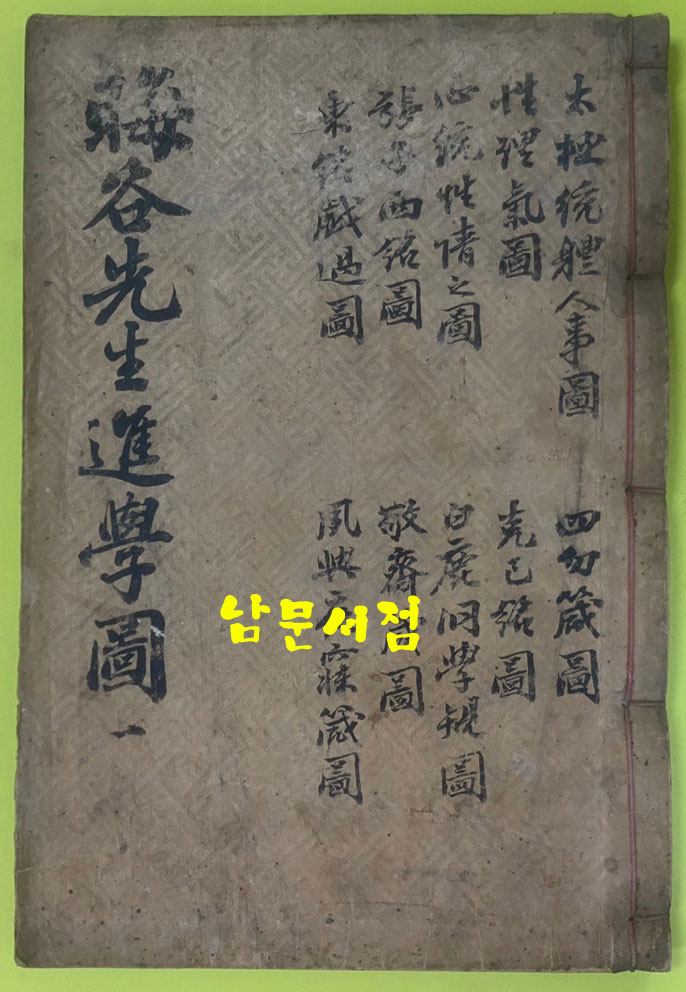 太極統體人事圖
性理氣圖
心統性情之圖
張子西銘圖
東銘戱過圖
四勿箴圖
克己銘圖
白鹿洞學規圖
敬齋箴圖
夙興夜寐箴圖
晦谷先生進學圖 一
남문서점